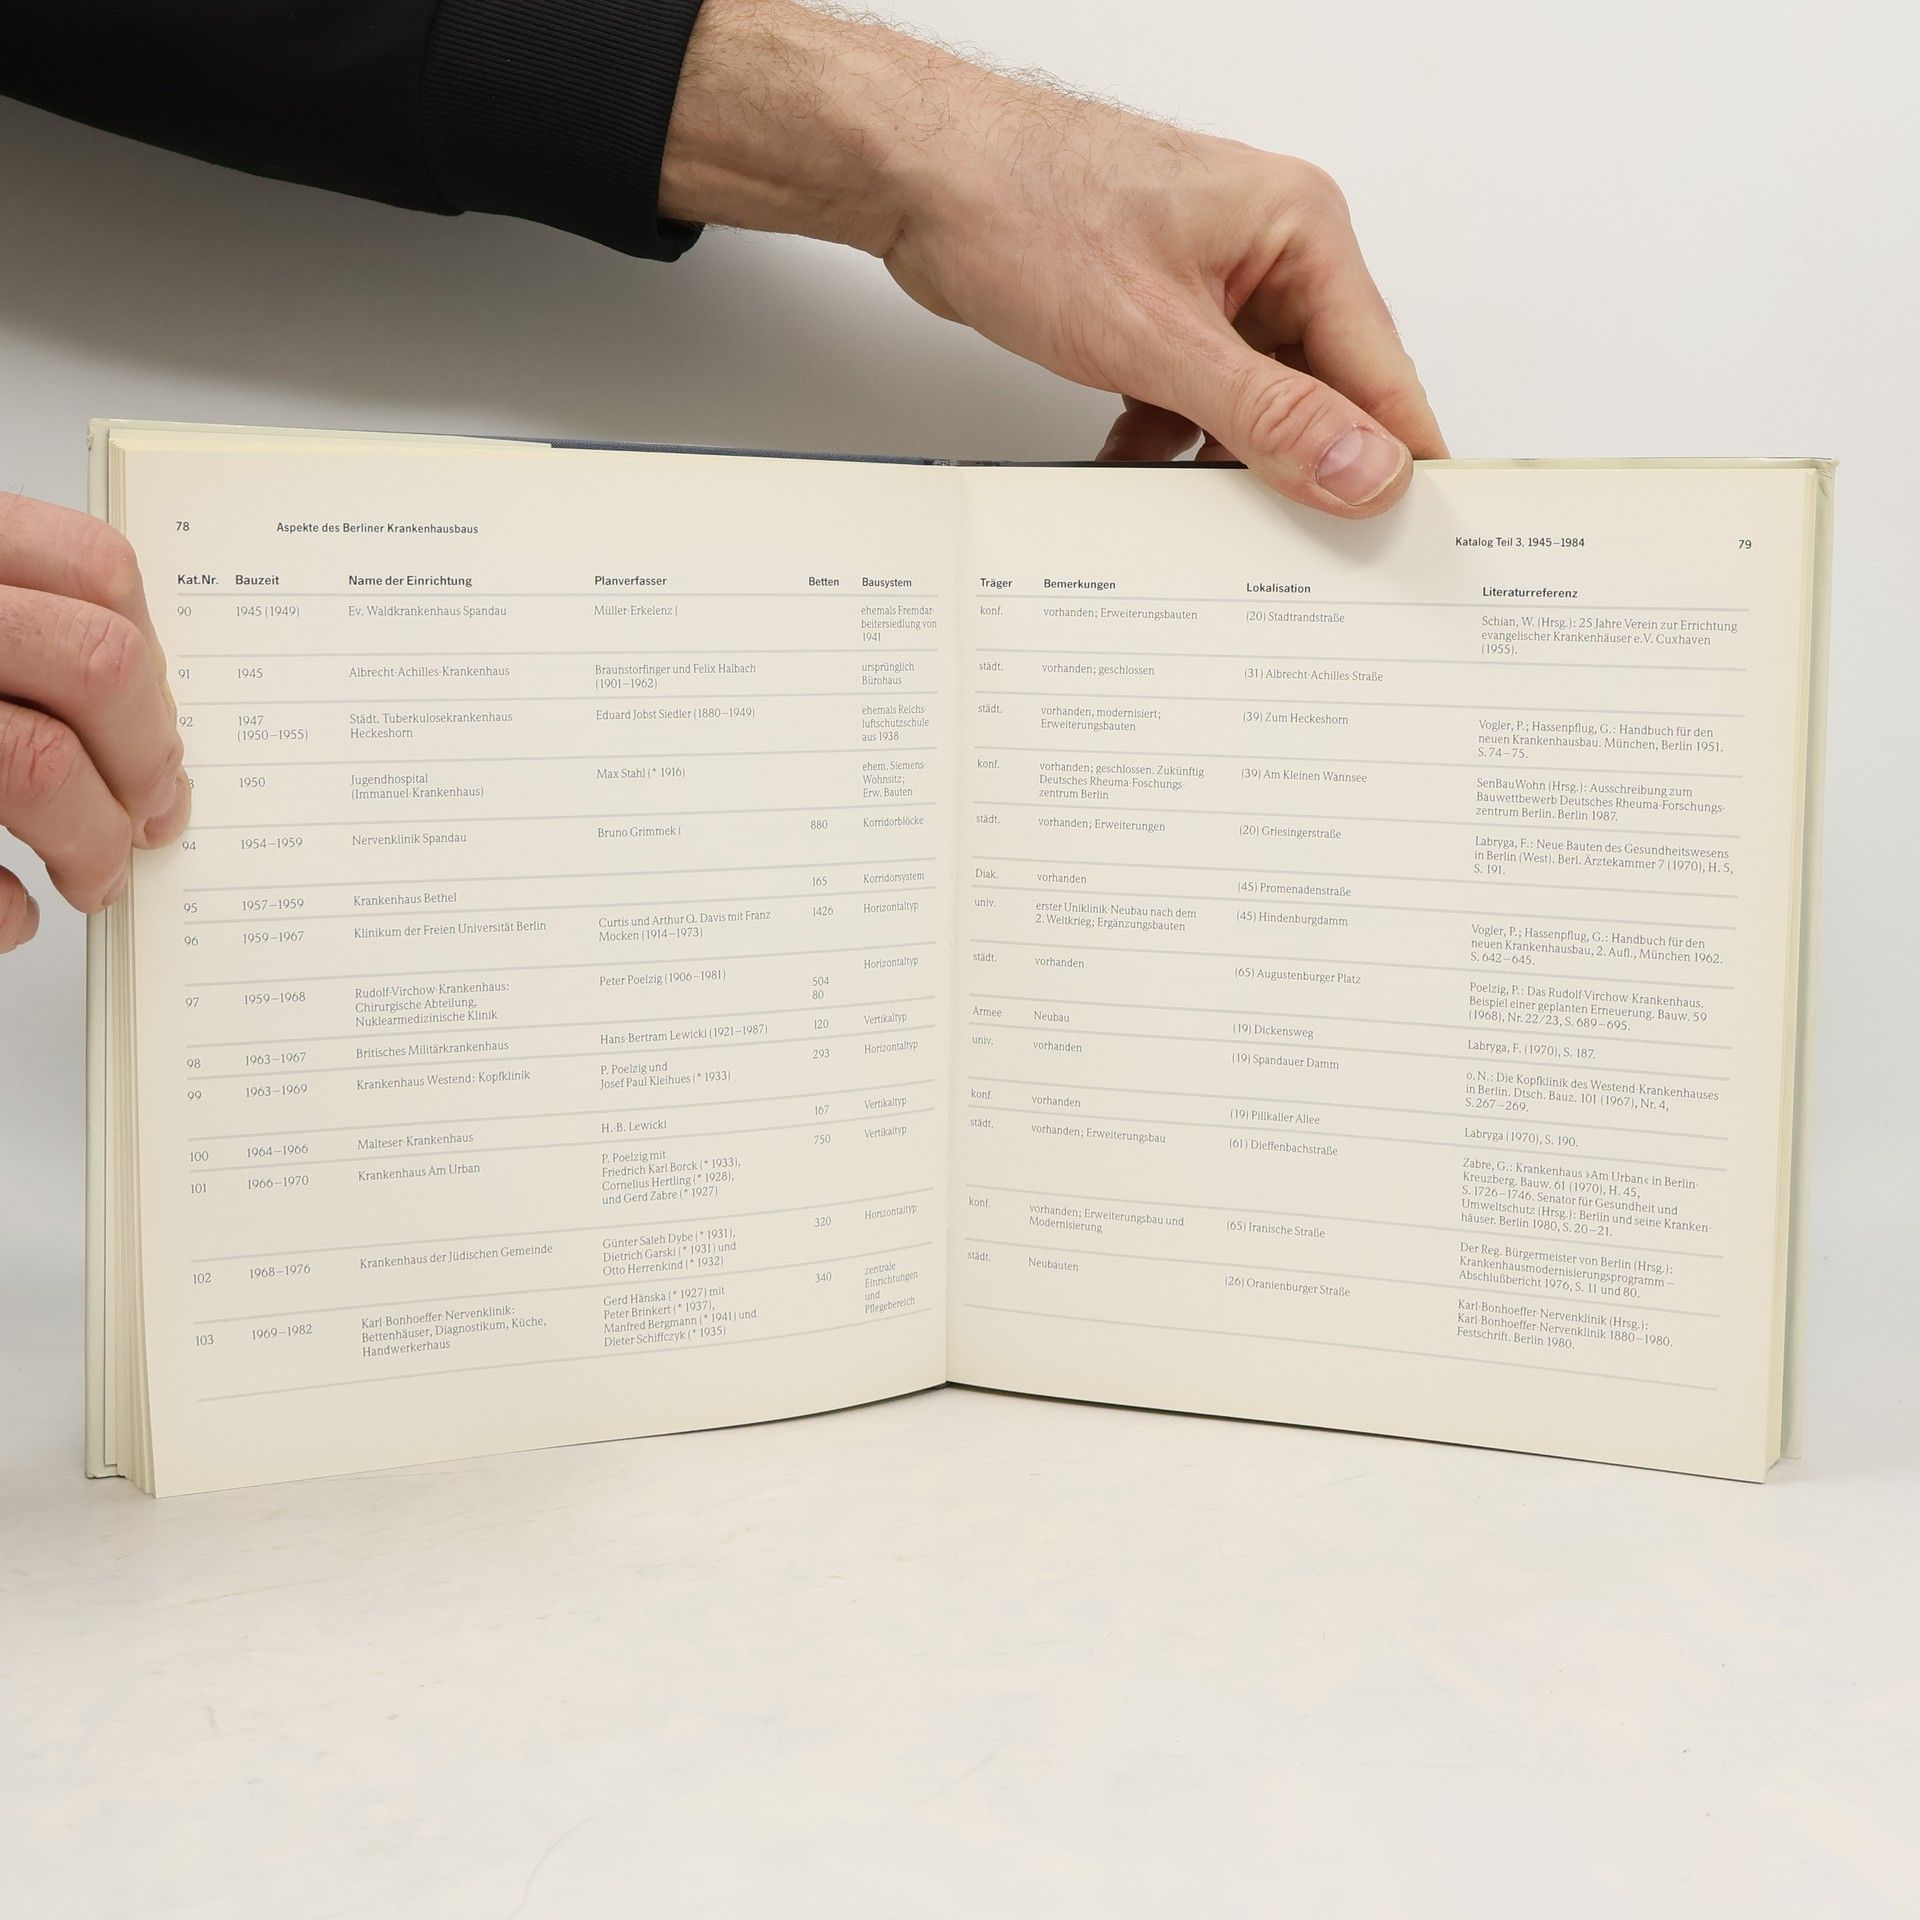 78 Aspekte des Berliner Krankenhausbaus
Kat.Nr. Bauzeit Name der Einrichtung Planverfasser Betten Bausystem
90 1945 (1949) Ev. Waldkrankenhaus Spandau Müller-Erkelenz ( ehemals Fremdar-
beitersiedlung von
1941
91 1945 Albrecht-Achilles-Krankenhaus Braunstorfinger und Felix Halbach ursprünglich
(1901–1962) Bürohaus
92 1947 Städt. Tuberkulosekrankenhaus Eduard Jobst Siedler (1880–1949) ehemals Reichs-
(1950–1955) Heckeshorn luftschutzschule
aus 1938
3 1950 Jugendhospital Max Stahl (* 1916) ehem. Siemens-
(Immanuel-Krankenhaus) Wohnsitz;
Erw. Bauten
94 1954–1959 Nervenklinik Spandau Bruno Grimmek ( 880 Korridorblöcke
95 1957–1959 Krankenhaus Bethel 165 Korridorsystem
96 1959–1967 Klinikum der Freien Universität Berlin Curtis und Arthur Q. Davis mit Franz 1426 Horizontaltyp
Mocken (1914–1973)
97 1959–1968 Rudolf-Virchow-Krankenhaus: Peter Poelzig (1906–1981) 504 Horizontaltyp
Chirurgische Abteilung, 80
Nuklearmedizinische Klinik
98 1963–1967 Britisches Militärkrankenhaus Hans-Bertram Lewicki (1921–1987) 120 Vertikaltyp
99 1963–1969 Krankenhaus Westend: Kopfklinik P. Poelzig und 293 Horizontaltyp
Josef Paul Kleihues (* 1933)
100 1964–1966 Malteser-Krankenhaus H.-B. Lewicki 167 Vertikaltyp
101 1966–1970 Krankenhaus Am Urban P. Poelzig mit 750 Vertikaltyp
Friedrich Karl Borck (* 1933),
Cornelius Hertling (* 1928),
und Gerd Zabre (* 1927)
102 1968–1976 Krankenhaus der Jüdischen Gemeinde Günter Saleh Dybe (* 1931), 320 Horizontaltyp
Dietrich Garski (* 1931) und
Otto Herrenkind (* 1932)
103 1969–1982 Karl-Bonhoeffer-Nervenklinik: Gerd Hänska (* 1927) mit 340 zentrale
Bettenhäuser, Diagnostikum, Küche, Peter Brinkert (* 1937), Einrichtungen
Handwerkerhaus Manfred Bergmann (* 1941) und und
Dieter Schiffczyk (* 1935) Pflegebereich
Katalog Teil 3, 1945–1984 79
Träger Bemerkungen Lokalisation Literaturreferenz
konf. vorhanden; Erweiterungsbauten (20) Stadtrandstraße Schian, W. (Hrsg.): 25 Jahre Verein zur Errichtung
evangelischer Krankenhäuser e.V. Cuxhaven
(1955).
städt. vorhanden; geschlossen (31) Albrecht-Achilles-Straße
städt. vorhanden, modernisiert; (39) Zum Heckeshorn Vogler, P.; Hassenpflug, G.: Handbuch für den
Erweiterungsbauten neuen Krankenhausbau. München, Berlin 1951.
S. 74–75.
konf. vorhanden; geschlossen. Zukünftig (39) Am Kleinen Wannsee SenBauWohn (Hrsg.): Ausschreibung zum
Deutsches Rheuma-Foschungs- Bauwettbewerb Deutsches Rheuma-Forschungs-
zentrum Berlin zentrum Berlin. Berlin 1987.
städt. vorhanden; Erweiterungen (20) Griesingerstraße Labryga, F.: Neue Bauten des Gesundheitswesens
in Berlin (West). Berl. Ärztekammer 7 (1970), H. 5,
S. 191.
Diak. vorhanden (45) Promenadenstraße
univ. erster Uniklinik-Neubau nach dem (45) Hindenburgdamm Vogler, P.; Hassenpflug, G.: Handbuch für den
2. Weltkrieg; Ergänzungsbauten neuen Krankenhausbau, 2. Aufl., München 1962.
S. 642–645.
städt. vorhanden (65) Augustenburger Platz Poelzig, P.: Das Rudolf-Virchow-Krankenhaus.
Beispiel einer geplanten Erneuerung. Bauw. 59
(1968), Nr. 22/23, S. 689–695.
Armee Neubau (19) Dickensweg Labryga, F. (1970), S. 187.
univ. vorhanden (19) Spandauer Damm o. N.: Die Kopfklinik des Westend-Krankenhauses
in Berlin. Dtsch. Bauz. 101 (1967), Nr. 4,
S. 267–269.
konf. vorhanden (19) Pillkaller Allee Labryga (1970), S. 190.
städt. vorhanden; Erweiterungsbau (61) Dieffenbachstraße Zabre, G.: Krankenhaus »Am Urban« in Berlin-
Kreuzberg. Bauw. 61 (1970), H. 45,
S. 1726–1746. Senator für Gesundheit und
Umweltschutz (Hrsg.): Berlin und seine Kranken-
häuser. Berlin 1980, S. 20–21.
konf. vorhanden; Erweiterungsbau und (65) Iranische Straße Der Reg. Bürgermeister von Berlin (Hrsg.):
Modernisierung Krankenhausmodernisierungsprogramm –
Abschlußbericht 1976, S. 11 und 80.
städt. Neubauten (26) Oranienburger Straße Karl-Bonhoeffer-Nervenklinik (Hrsg.):
Karl-Bonhoeffer-Nervenklinik 1880–1980.
Festschrift. Berlin 1980.